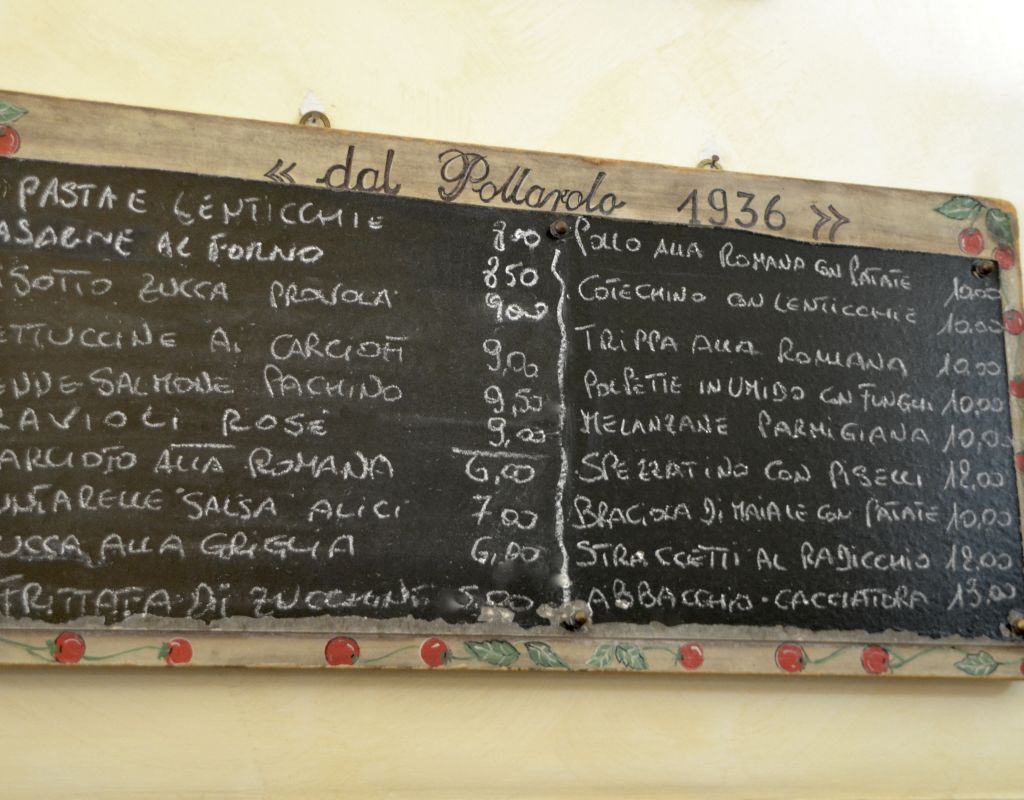 « dal Pollarolo 1936 »
PASTA E LENTICCHIE 8,00
ASAGNE AL FORNO 850
ISOTTO ZUCCA PROVOLA 900
ETTUCCINE AI CARCIOFI 9,00
ENNE SALMONE PACHINO 9,50
RAVIOLI ROSÉ 9,00
ARCIOFO ALLA ROMANA 6,00
UNTARELLE SALSA ALICI 7,00
UCCA ALLA GRIGLIA 6,00
FRITTATA DI ZUCCHINE 5,00
POLLO ALLA ROMANA CON PATATE 10,00
COTECHINO CON LENTICCHIE 10,00
TRIPPA ALLA ROMANA 10,00
POLPETTE IN UMIDO CON FUNGHI 10,00
MELANZANE PARMIGIANA 10,00
SPEZZATINO CON PISELLI 12,00
BRACIOLA DI MAIALE CON PATATE 10,00
STRACCETTI AL RADICCHIO 12,00
ABBACCHIO-CACCIATORA 13,00